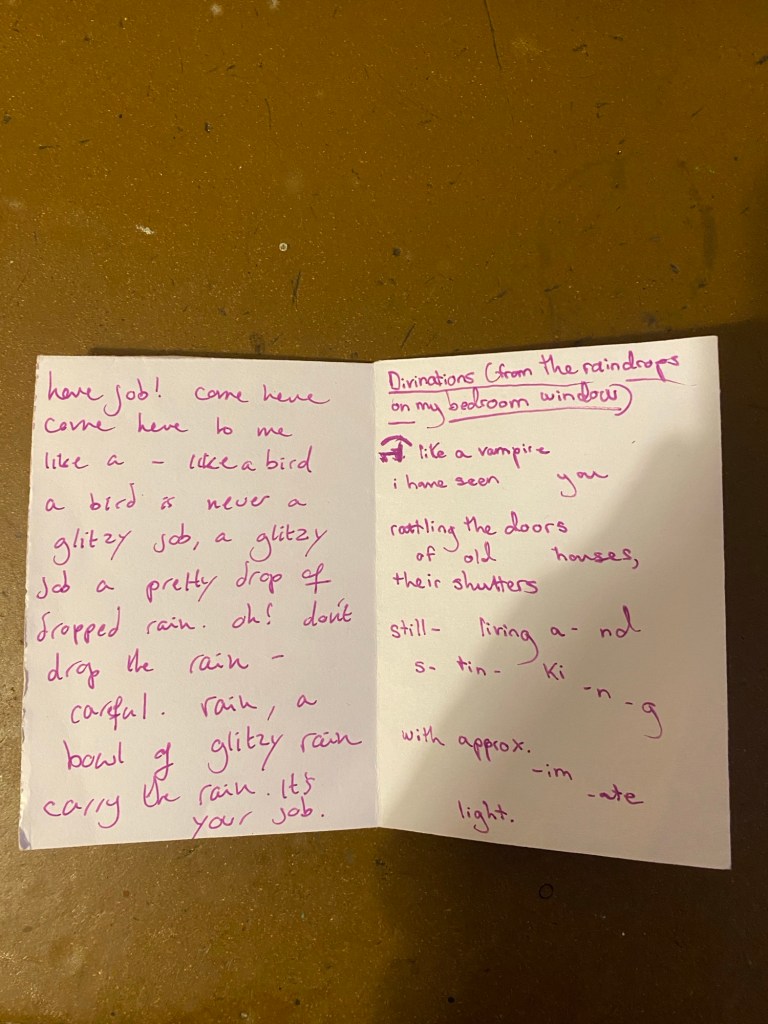 have job! come here
come here to me
like a - like a bird
a bird is never a
glitzy job, a glitzy
job a pretty drop of
dropped rain. oh! don't
drop the rain -
careful. rain, a
bowl of glitzy rain
carry the rain. It's
your job.
Divinations (from the raindrops
on my bedroom window)
like a vampire
i have seen you
rattling the doors
of old houses,
their shutters
still- living a- nd
s- tin- ki
-n - g
with approx.
-im
-ate
light.